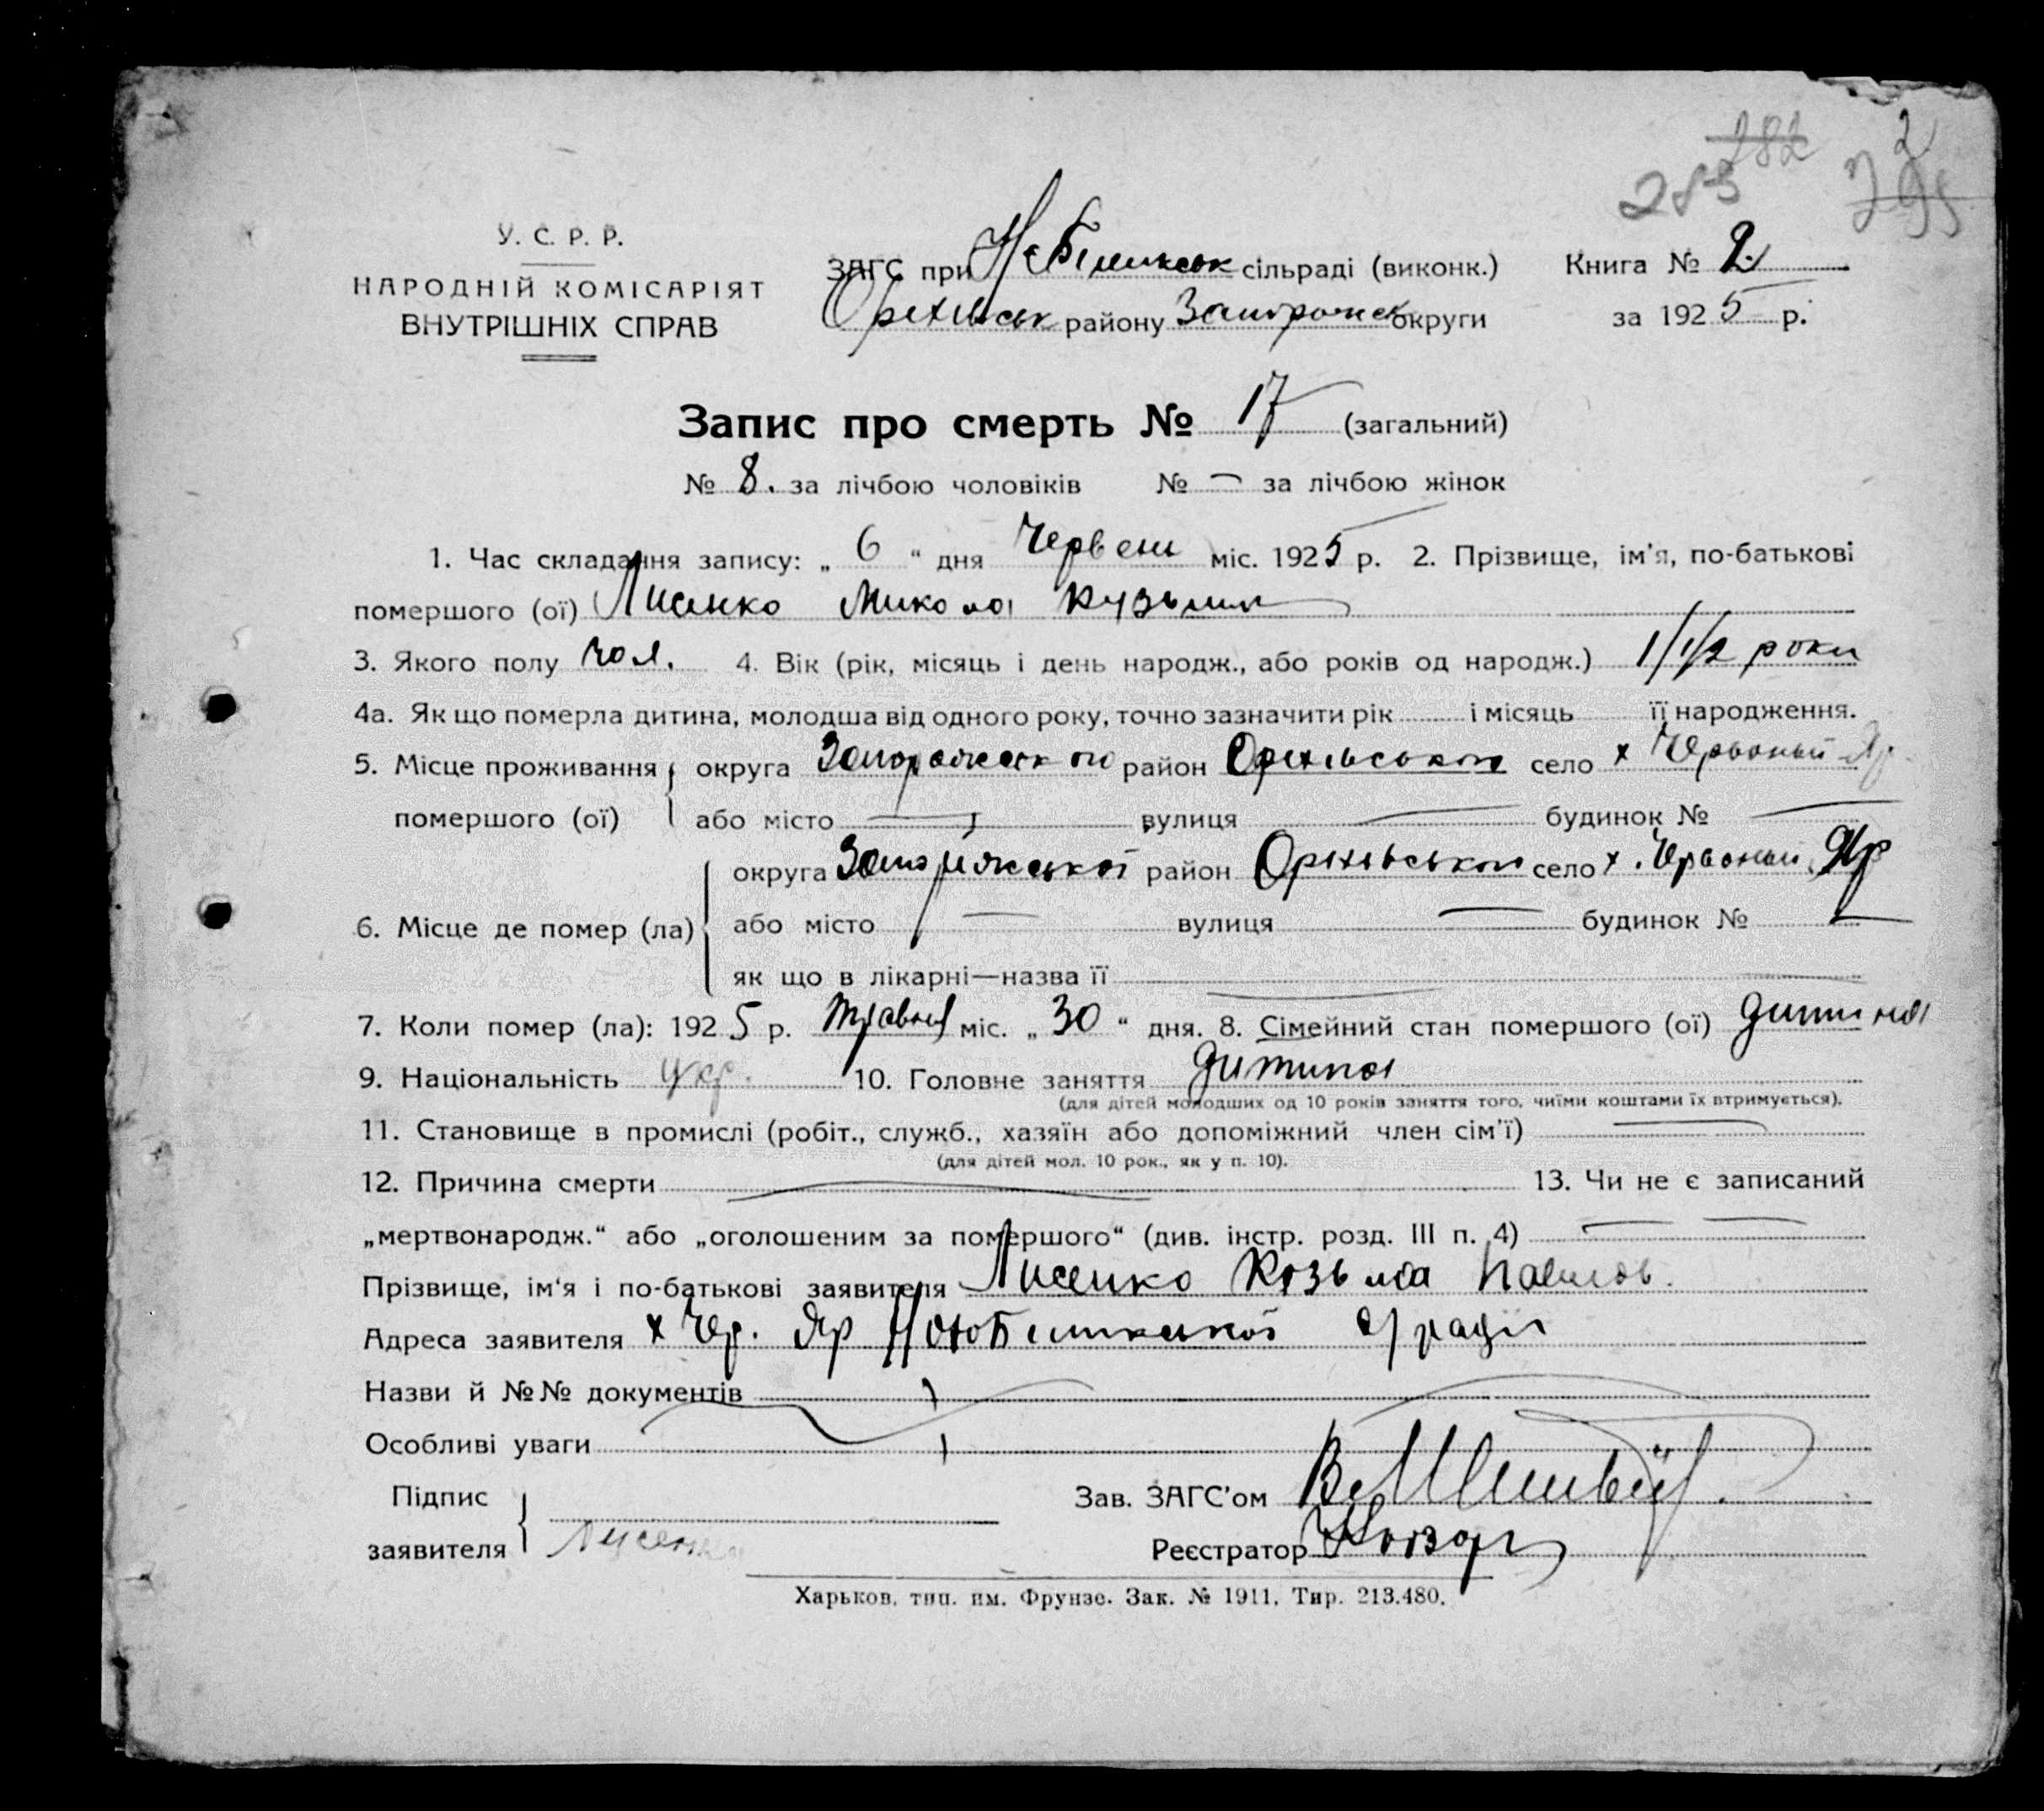 282
283
У. С. Р. Р.
НАРОДНІЙ КОМІСАРІЯТ
ВНУТРІШНІХ СПРАВ
ЗАГС при сільраді (виконк.)
Орехівськ району Запорожск округи
Книга № 2
за 1925 р.
Запис про смерть № 17 (загальний)
№ 8. за лічбою чоловіків № — за лічбою жінок
1. Час складання запису: „ 6 “ дня Червень міс. 1925 р. 2. Прізвище, ім'я, по-батькові
помершого (ої) Лисенко Микола Кузьмич
3. Якого полу чол. 4. Вік (рік, місяць і день народж., або років од народж.) 1/1/2 роки
4а. Як що померла дитина, молодша від одного року, точно зазначити рік і місяць її народження.
5. Місце проживання помершого (ої) округа район Орехівського село х Червоный Яр
або місто — вулиця — будинок № —
6. Місце де помер (ла) округа Запоріжської район Оріхівськой село х. Червоный Яр
або місто — вулиця — будинок № —
як що в лікарні—назва її —
7. Коли помер (ла): 1925 р. Травня міс. „ 30 “ дня. 8. Сімейний стан помершого (ої) дитина
9. Національність укр. 10. Головне заняття дитина
(для дітей молодших од 10 років заняття того, чиїми коштами їх втримується).
11. Становище в промислі (робіт., служб., хазяїн або допоміжний член сім'ї) —
(для дітей мол. 10 рок., як у п. 10).
12. Причина смерти — 13. Чи не є записаний
„мертвонародж.“ або „оголошеним за помершого“ (див. інстр. розд. III п. 4) — —
Прізвище, ім'я і по-батькові заявителя Лисенко Козьма Павлов.
Адреса заявителя х Чер. Яр с/ради
Назви й №№ документів
Особливі уваги
Підпис
заявителя Лисенко
Зав. ЗАГС'ом
Реєстратор
Харьков, тип. им. Фрунзе. Зак. № 1911. Тир. 213.480.